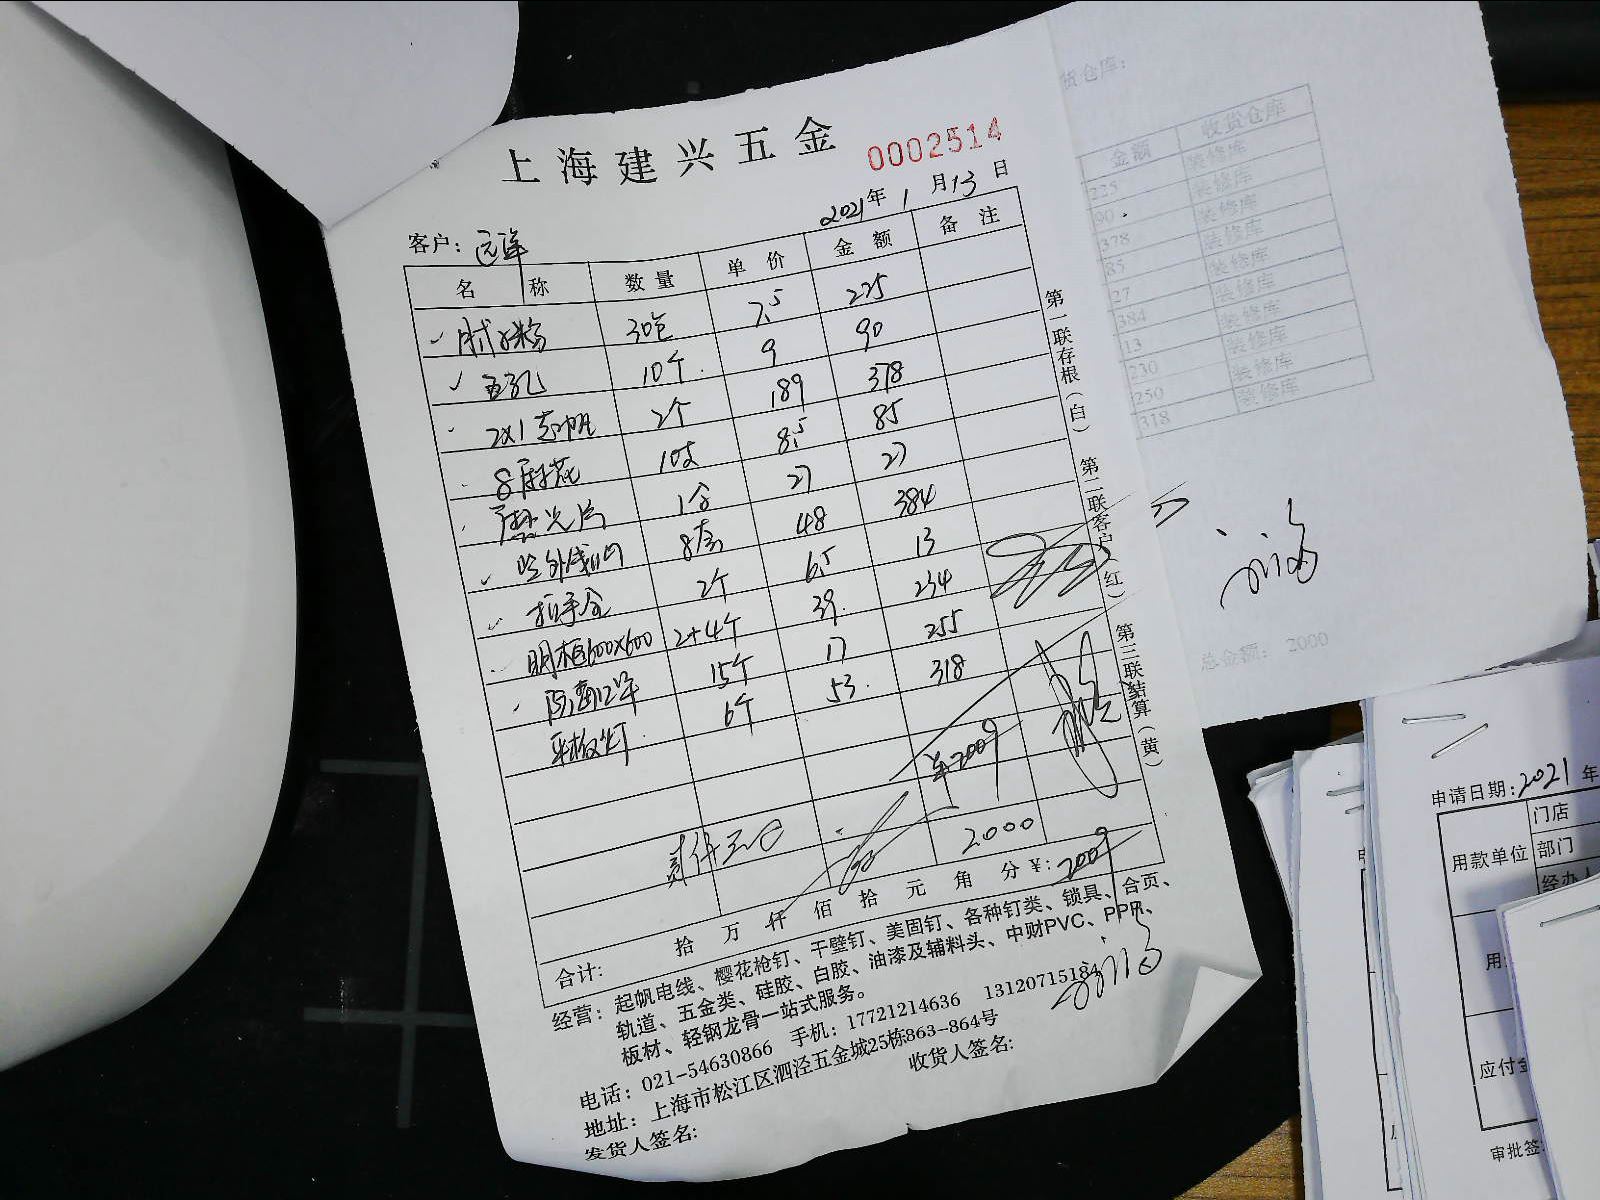 上海建兴五金
0002514
2021年 1 月 13 日
客户：远洋
名 称 数量 单价 金额 备注
腻子粉 30包 7.5 225
五孔 10个 9 90
2x1起帆 2个 189 378
8麻花 10支 8.5 85
1合 27 27
8套 48 384
2个 6.5 13
明框600x600 2+4个 39 234
15个 17 255
平板灯 6个 53 318
¥2009
贰仟元
2000
合计： 拾 万 仟 佰 拾 元 角 分 ¥：2009
经营：起帆电线、樱花枪钉、干壁钉、美固钉、各种钉类、锁具、合页、
轨道、五金类、硅胶、白胶、油漆及辅料头、中财PVC、PPR、
板材、轻钢龙骨一站式服务。
电话：021-54630866 手机：17721214636 13120715184
地址：上海市松江区泗泾五金城25栋863-864号
发货人签名： 收货人签名：
第一联存根（白） 第二联客户（红） 第三联结算（黄）
货仓库：
金额 收货仓库
225 装修库
90 装修库
378 装修库
85 装修库
27 装修库
384 装修库
13 装修库
230 装修库
250 装修库
318 装修库
总金额： 2000
申请日期：2021年
用款单位
门店
部门
经办人
用
应付金
审批签